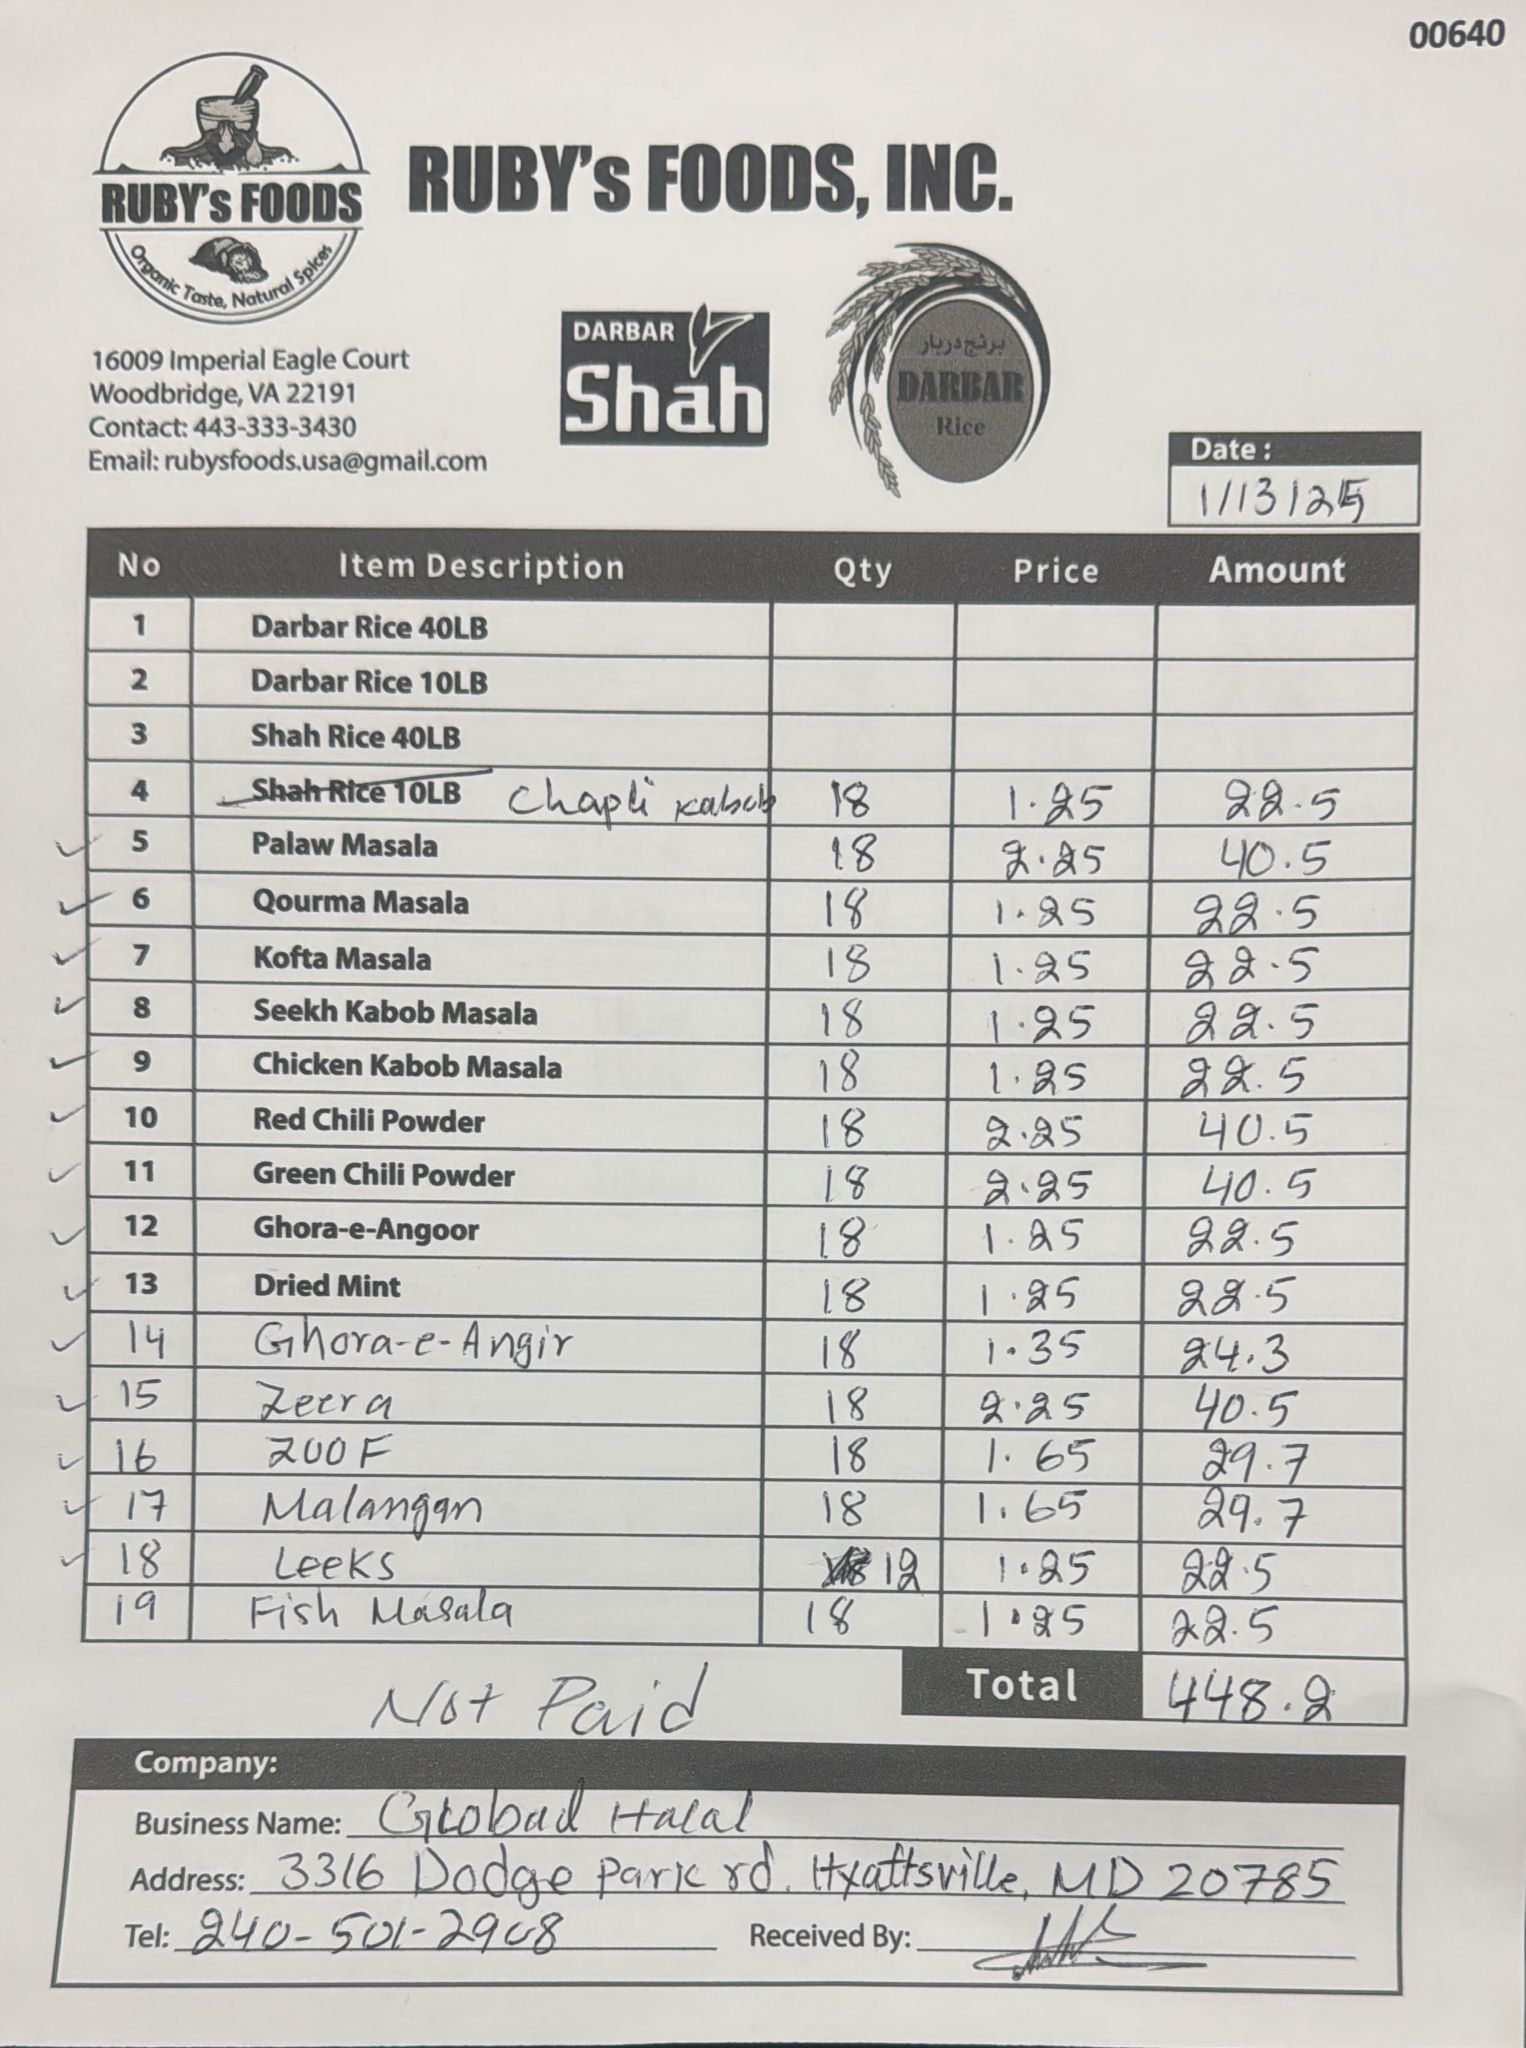 00640
RUBY's FOODS
Organic Taste, Natural Spices
RUBY's FOODS, INC.
DARBAR
Shah
برنج دربار
DARBAR
Rice
16009 Imperial Eagle Court
Woodbridge, VA 22191
Contact: 443-333-3430
Email: rubysfoods.usa@gmail.com
Date :
1/13/25
No Item Description Qty Price Amount
1 Darbar Rice 40LB
2 Darbar Rice 10LB
3 Shah Rice 40LB
4 Shah Rice 10LB Chapli Kabob 18 1.25 22.5
5 Palaw Masala 18 2.25 40.5
6 Qourma Masala 18 1.25 22.5
7 Kofta Masala 18 1.25 22.5
8 Seekh Kabob Masala 18 1.25 22.5
9 Chicken Kabob Masala 18 1.25 22.5
10 Red Chili Powder 18 2.25 40.5
11 Green Chili Powder 18 2.25 40.5
12 Ghora-e-Angoor 18 1.25 22.5
13 Dried Mint 18 1.25 22.5
14 Ghora-e-Angir 18 1.35 24.3
15 Zeera 18 2.25 40.5
16 ZOOF 18 1.65 29.7
17 Malangan 18 1.65 29.7
18 Leeks 12 1.25 22.5
19 Fish Masala 18 1.25 22.5
Total 448.2
Not Paid
Company:
Business Name: Globad Halal
Address: 3316 Dodge Park rd. Hyattsville, MD 20785
Tel: 240-501-2908 Received By: